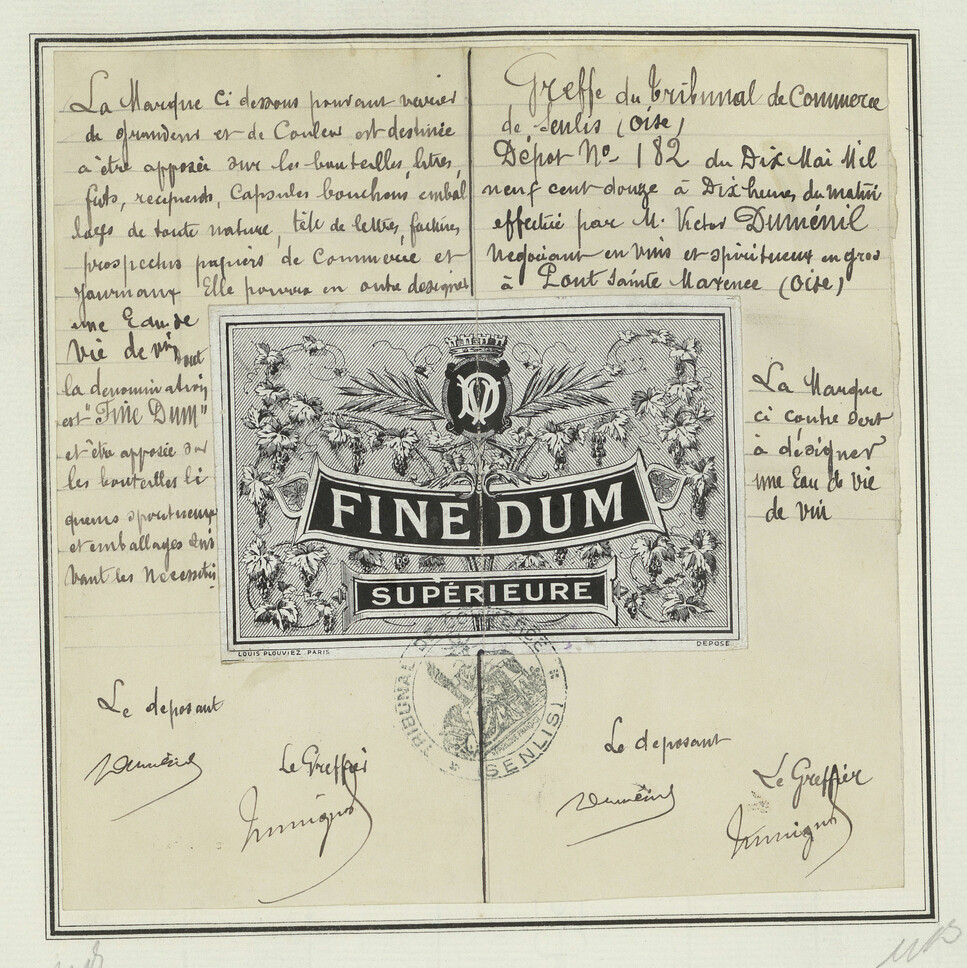 La Marque ci dessous pouvant varier
de grandeur et de Couleur est destinée
à être apposée sur les bouteilles, litres,
futs, recipients, Capsules bouchons, embal
lages de toute nature, tête de lettres, factures,
prospectus papiers de Commerce et
Journaux Elle pourra en outre designer
une Eau de
Vie de vin dont
la denomination
est "Fine Dum"
et être apposée sur
les bouteilles li
queurs spiritueux
et emballages sui
vant les necessités
Greffe du Tribunal de Commerce
de Senlis (Oise)
Dépot No 182 du Dix Mai Mil
neuf cent douze à Dix heures du matin
effectué par M. Victor Duménil
Negociant en vins et spiritueux en gros
à Pont Sainte Maxence (Oise)
La Marque
ci contre sert
à désigner
une Eau de vie
de vin
FINE DUM
SUPÉRIEURE
LOUIS PLOUVIEZ PARIS
DEPOSE
TRIBUNAL DE COMMERCE
SENLIS
Le deposant
Duménil
Le Greffier
Le deposant
Duménil
Le Greffier